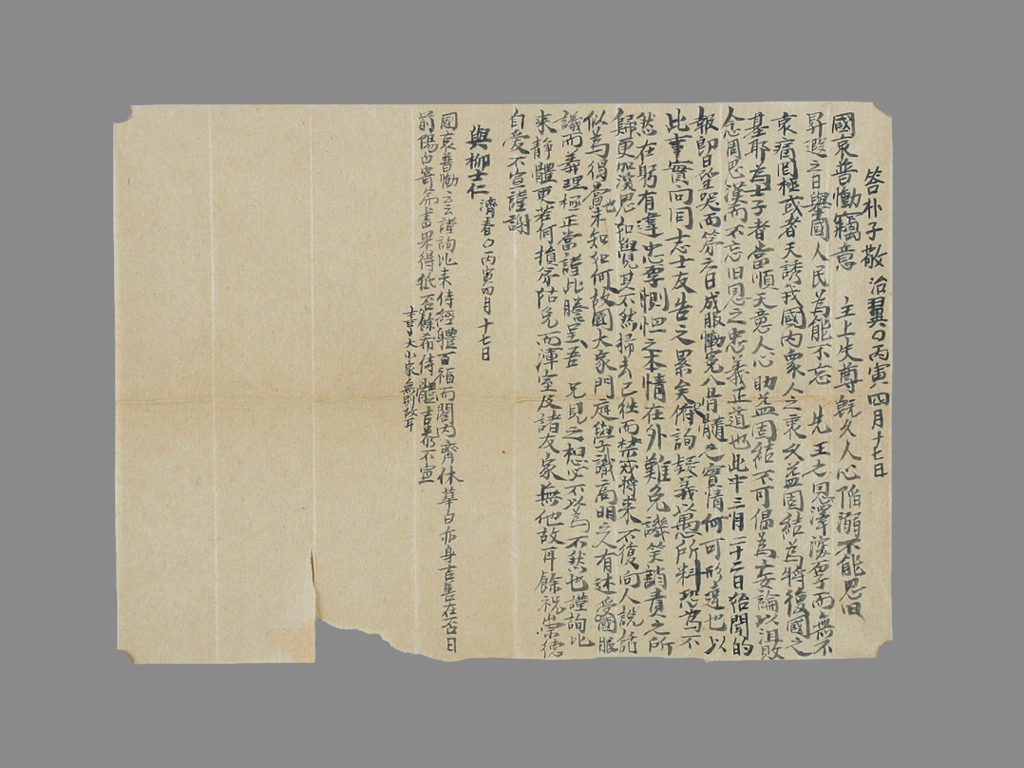 答朴子敬 治翼〇丙寅四月十七日
國哀普慟竊意 主上失尊旣久人心陷溺不能思旧
昇遐之日擧國人民為能不忘 先王之恩澤 而無不
哀痛罔極或者天誘我國內衆人之衷又益固結為將復國之
基耶為士子者當順天意人心助益固結不可倡為妄論以沮敗
念周思漢而不忘旧恩之忠義正道也此中三月二十二日始聞的
報卽日望哭而第六日成服慟冤入骨髓之實情何可形達也以
此事實向同志士友告之累矣俯詢疑義以愚所料恐為不
然在躬有違忠孝惻怛之本情在外難免譏笑誚責之所
歸更加深思如覺其不然掃去已往而禁戒將來不復向人說話
似為得當未知如何故國大家門庭學識高明之人有述受國服
議而義理極正當謹此謄呈吾 兄見之想必不以為不然也謹詢比
來靜體更若何損 節 而渾室及諸友家無他故耳餘祝崇德
自愛不宣謹謝
與柳士仁 濟春〇丙寅四月十七日
國哀普慟云云謹詢比來侍經體百福而閤內齊休華白亦身吉善在否日
前陽占寄 書果得抵否餘希侍體吉泰不宣
士亨大小家無別故耳